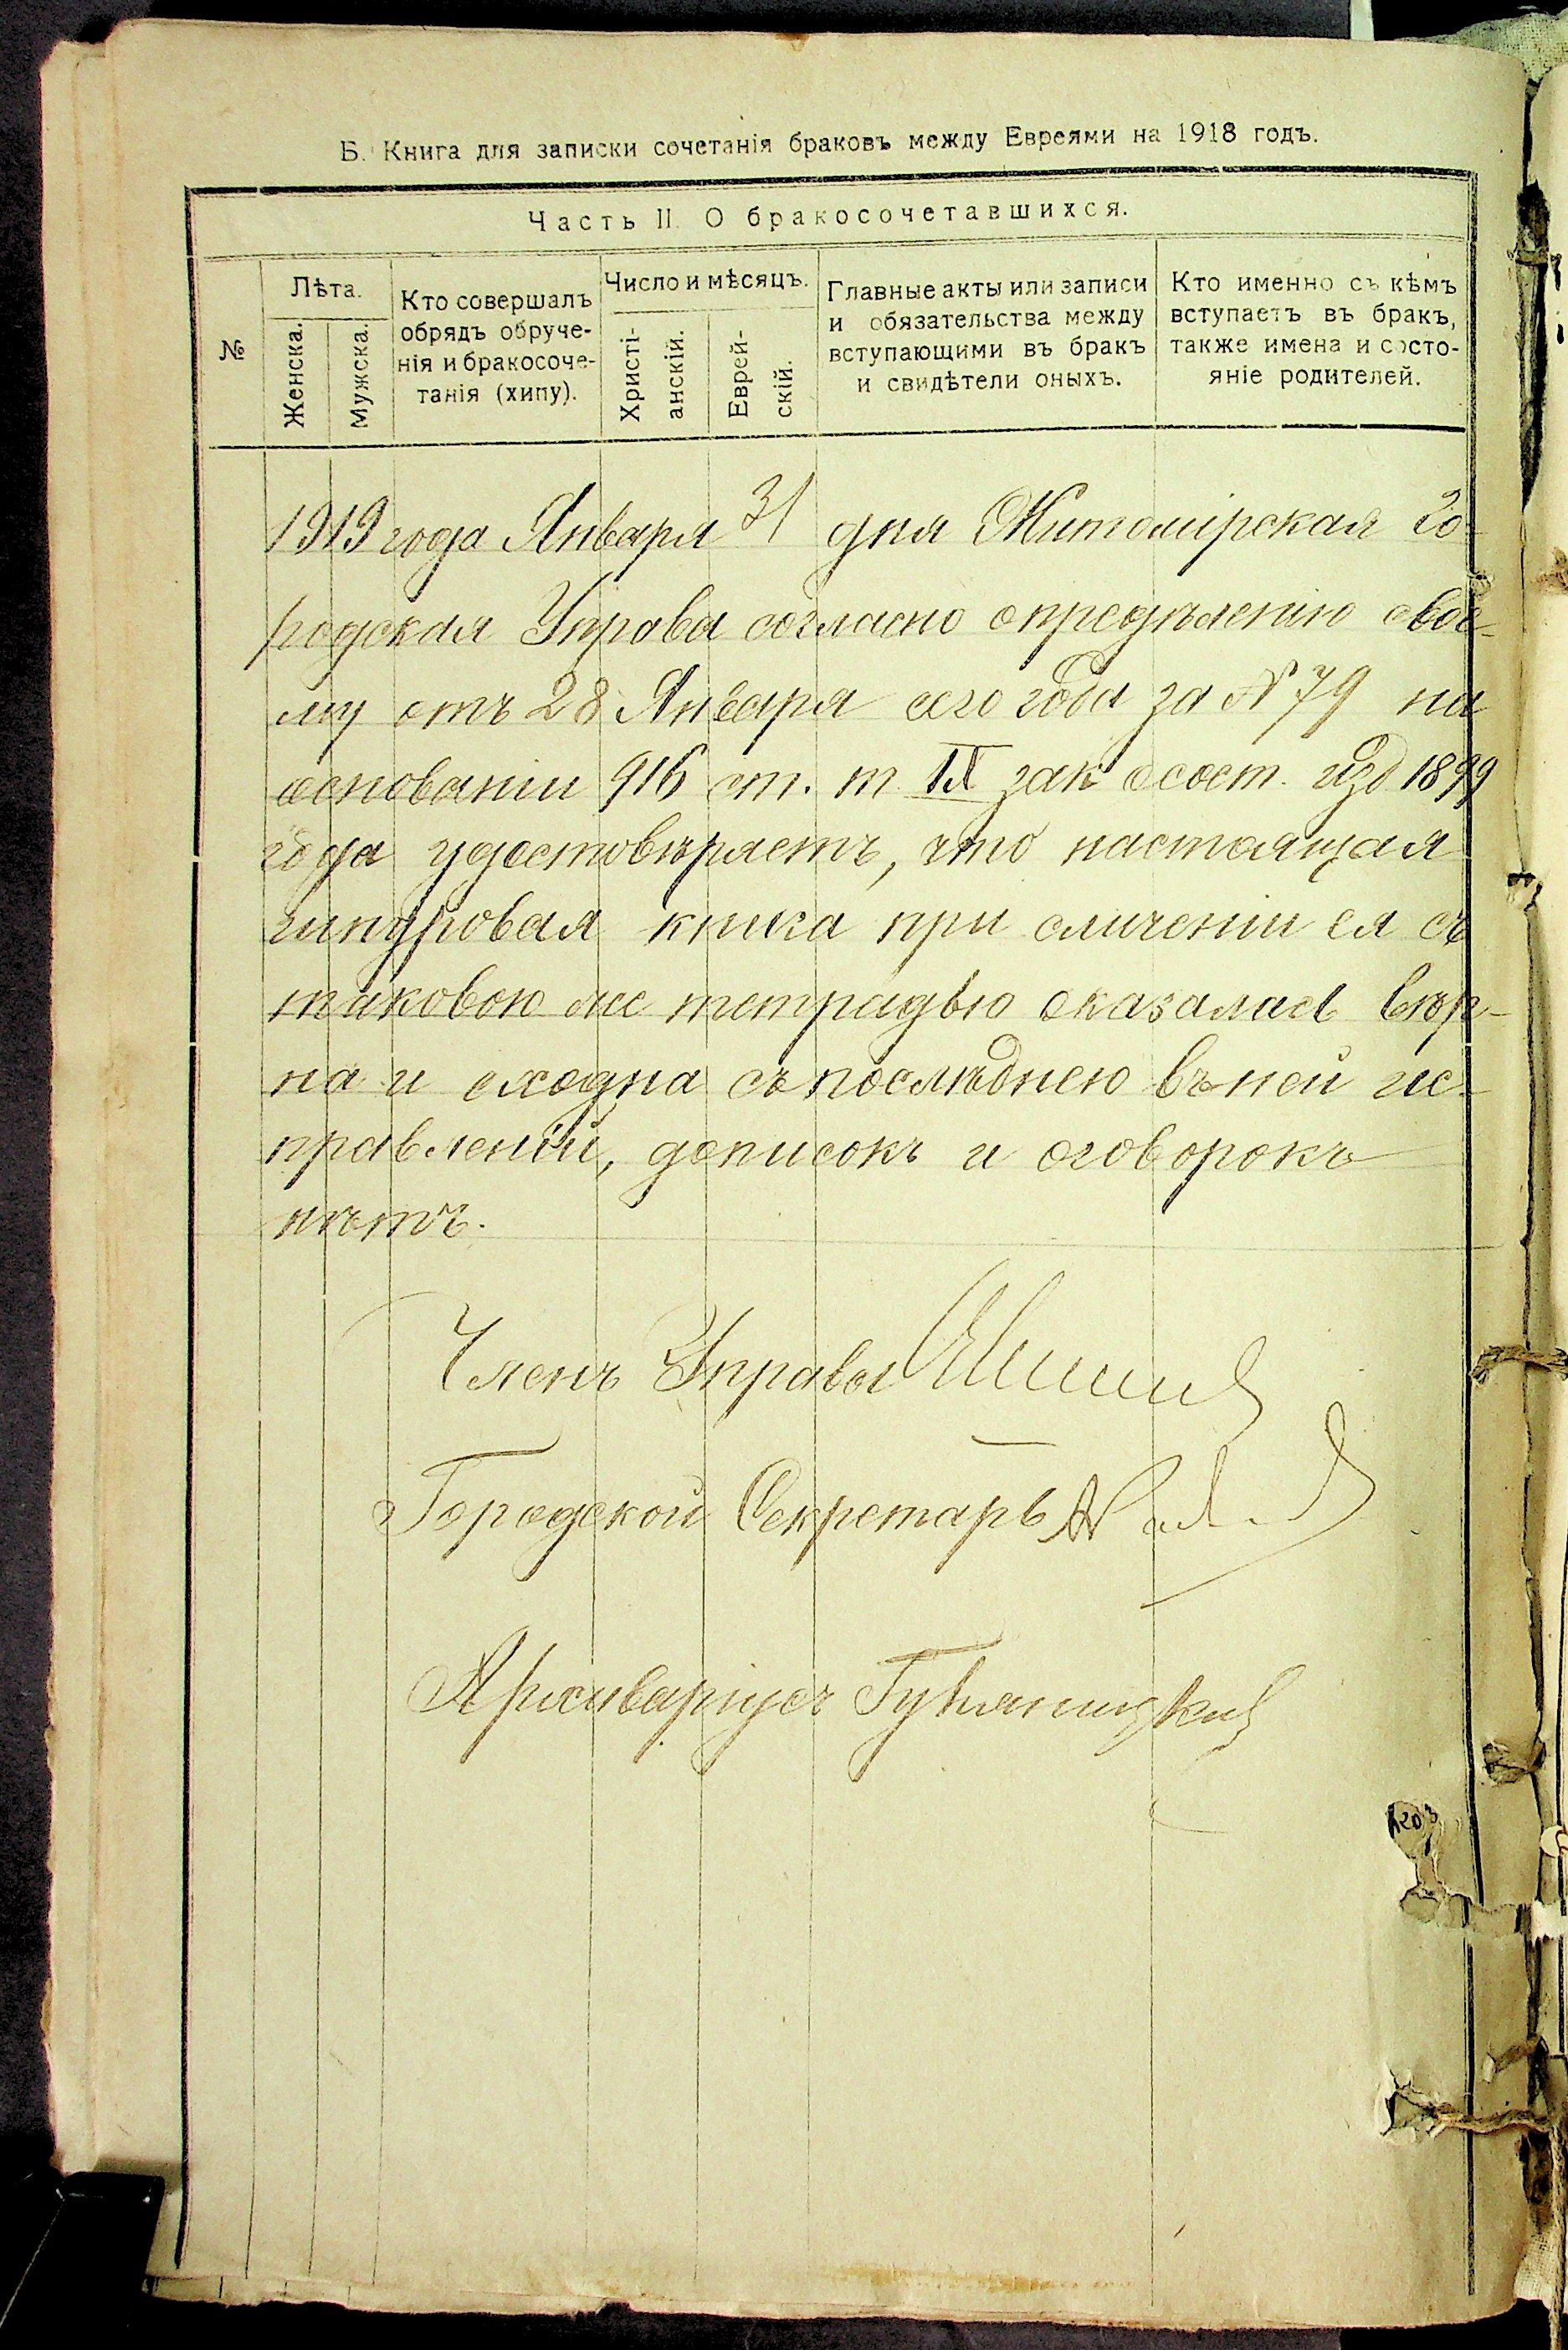 Б. Книга для записки сочетанія браковъ между Евреями на 1918 годъ.
Часть II. О бракосочетавшихся.
№
Лѣта.
Женска.
Мужска.
Кто совершалъ
обрядъ обруче-
нія и бракосоче-
танія (хипу).
Число и мѣсяцъ.
Христі-
анскій.
Еврей-
скій.
Главные акты или записи
и обязательства между
вступающими въ бракъ
и свидѣтели оныхъ.
Кто именно съ кѣмъ
вступаетъ въ бракъ,
также имена и состо-
яніе родителей.
1919 года Января 31 дня Житомірская Го-
родская Управа согласно опредѣленію свое-
му отъ 28 Января сего года за № 79 на
основаніи 916 ст. т. IX зак о сост. изд 1899
года удостовѣряетъ, что настоящая
шнуровая книга при сличеніи ея съ
таковою же тетрадью оказалась вѣр-
на и сходна съ послѣднею въ ней ис-
правленій, дописокъ и оговорокъ
нѣтъ.
Членъ Управы
Городской Секретарь
Архиваріусъ